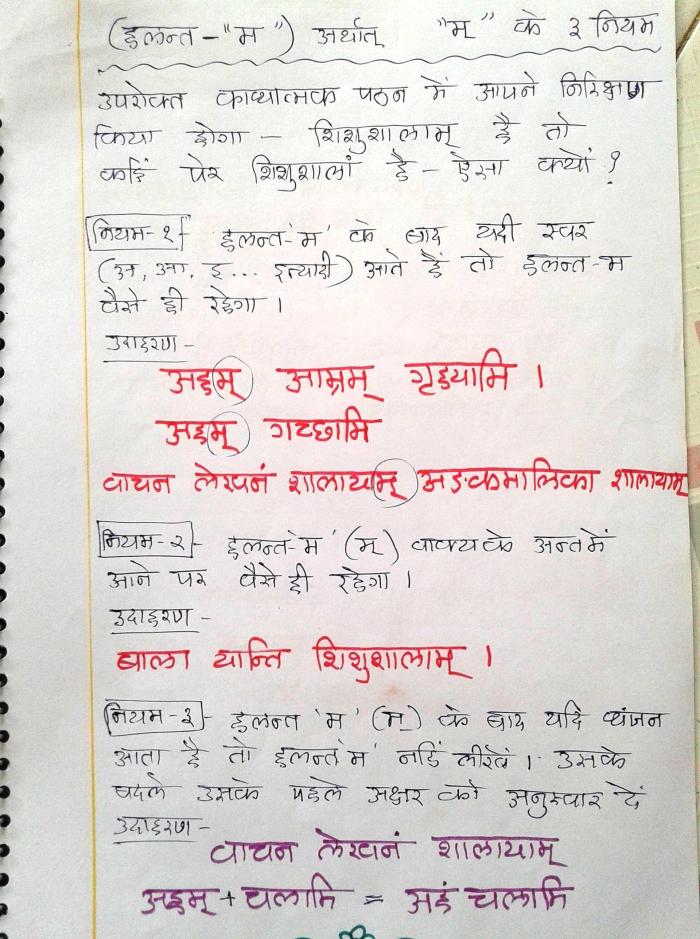 (हलन्त-"म") अर्थात् "म्" के ३ नियम
उपरोक्त काव्यात्मक पठन में आपने निरिक्षण
किया होगा - शिशुशालाम् है तो
कहिं पेर शिशुशालां है - ऐसा क्यों ?
नियम-१- हलन्त-'म' के बाद यदी स्वर
(अ, आ, इ... इत्यादी) आते हैं तो हलन्त-म
वैसे ही रहेगा ।
उदाहरण -
अहम् आम्रम् गृहयामि ।
अहम् गच्छामि
वाचन लेखनं शालायाम् अङ्कमालिका शालायाम्
नियम-२- हलन्त-'म' (म्) वाक्य के अन्त में
आने पर वैसे ही रहेगा ।
उदाहरण -
बाला यान्ति शिशुशालाम् ।
नियम-३- हलन्त 'म' (म्) के बाद यदि व्यंजन
आता है तो हलन्त 'म' नहिं लीखें । उसके
बदले उसके पहले अक्षर को अनुस्वार दें
उदाहरण -
वाचन लेखनं शालायाम्
अहम् + चलामि = अहं चलामि